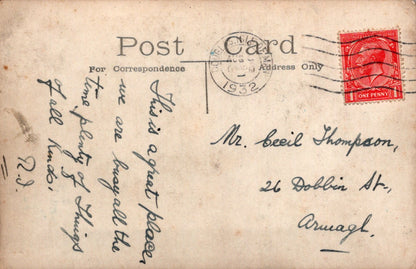 Post Card
For Correspondence
Address Only
1932
ONE PENNY
This is a great place,
we are busy all the
time, plenty of Things
of all Kinds.
Mr. Cecil Thompson,
26 Dobbin St.,
Armagh.